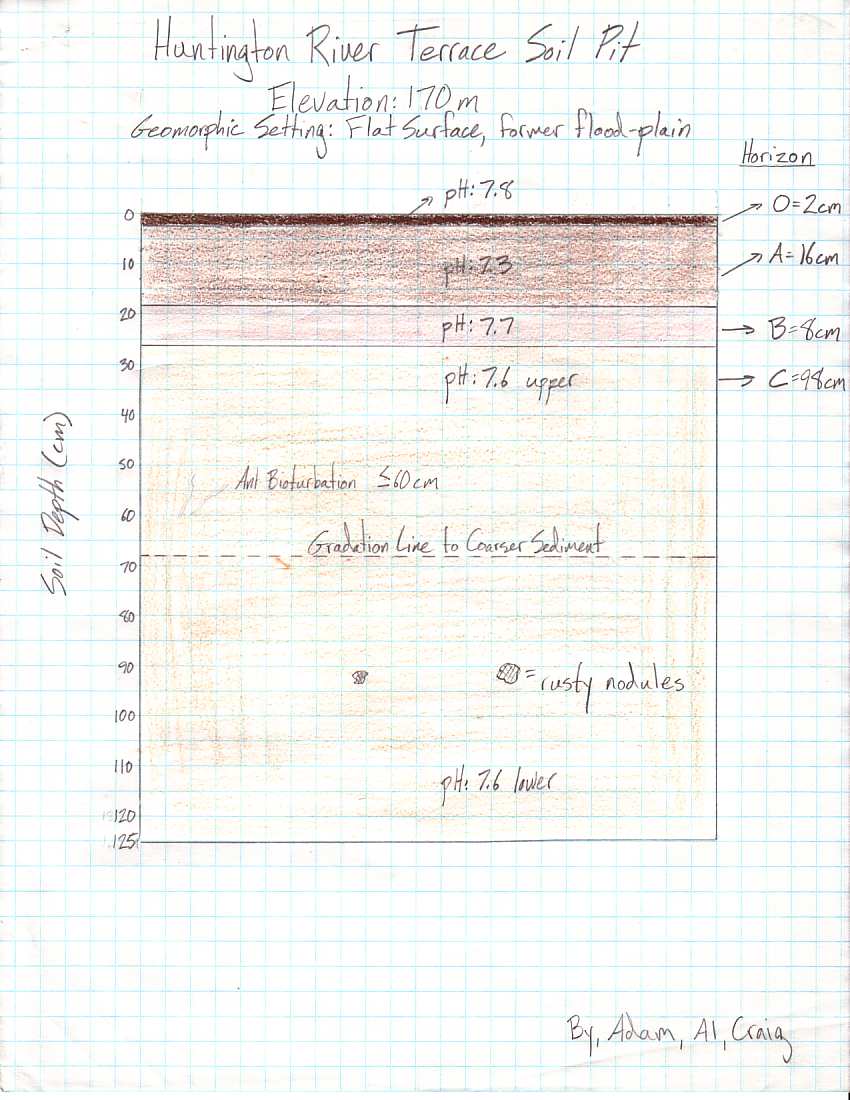 Huntington River Terrace Soil Pit
Elevation: 170m
Geomorphic Setting: Flat Surface, former flood-plain
Horizon
pH: 7.8
O=2cm
0
A=16cm
10
pH: 7.3
20
pH: 7.7
B=8cm
30
pH: 7.6 upper
C=98cm
40
50
Ant Bioturbation ≤60cm
60
Soil Depth (cm)
Gradation Line to Coarser Sediment
70
80
90
= rusty nodules
100
110
pH: 7.6 lower
120
125
By, Adam, Al, Craig